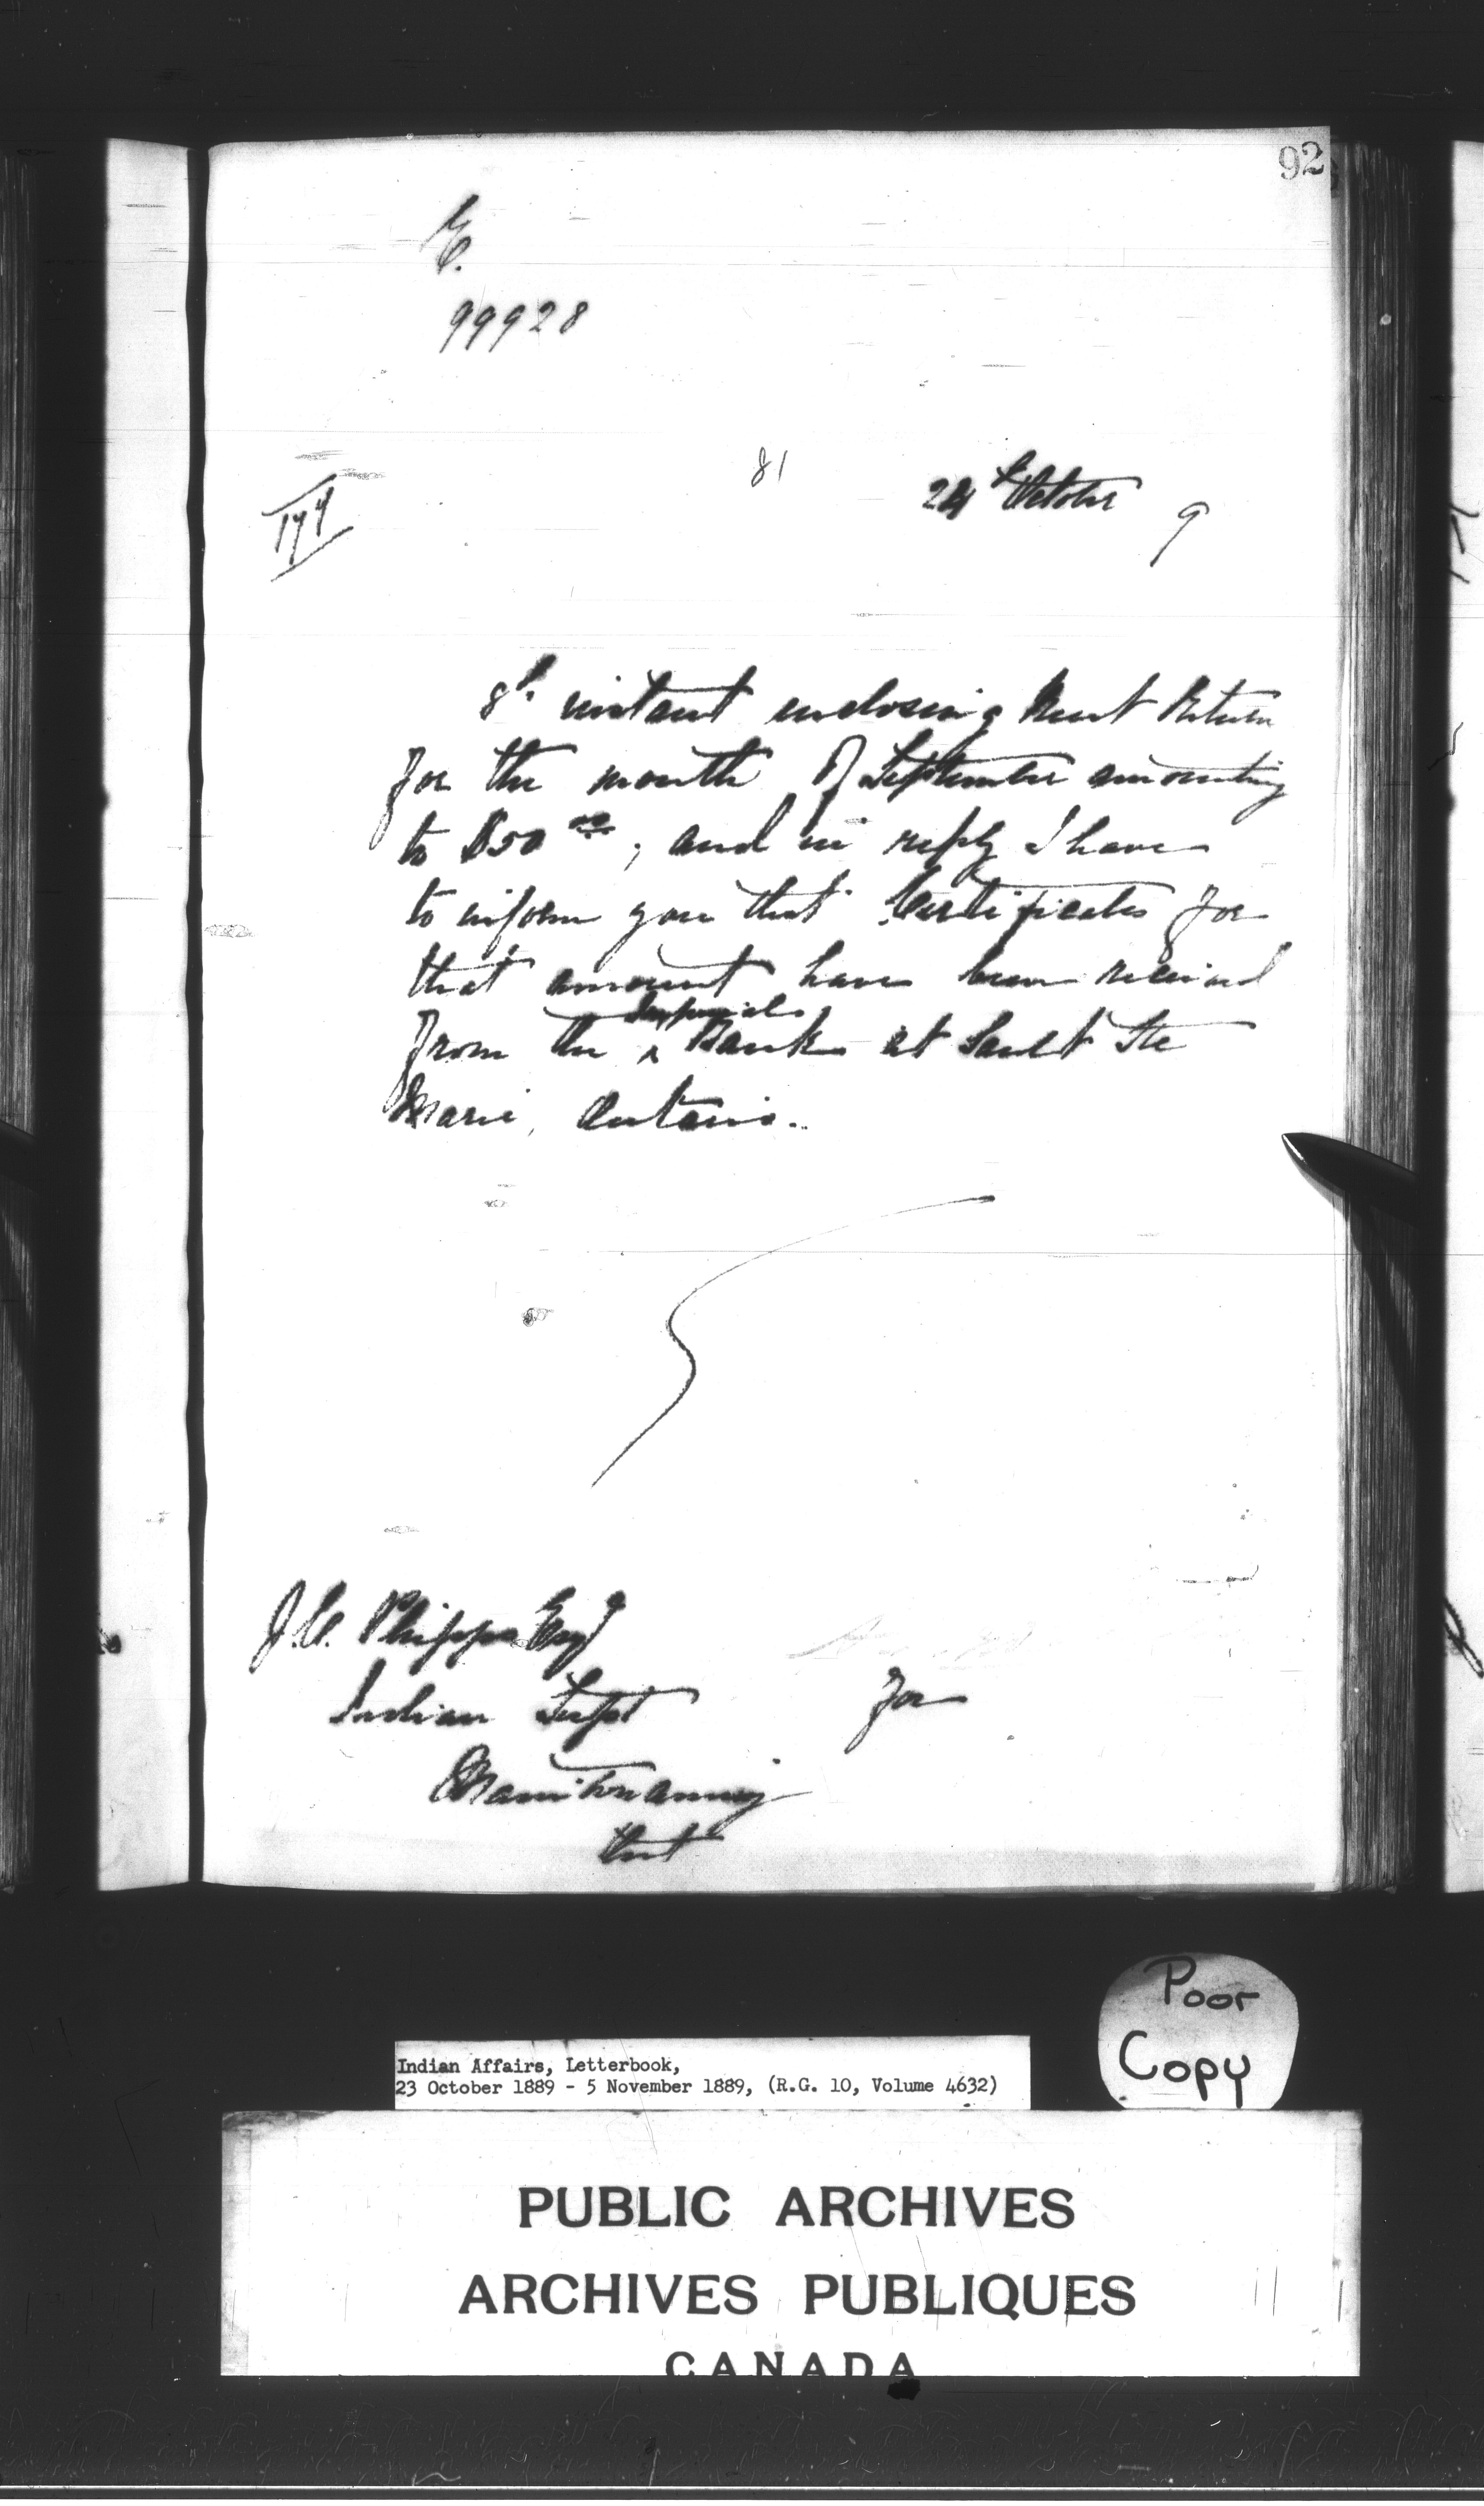 92
99928
81
24 October 9
8th instant enclosing Rent Return
for the month of September amounting
to $50 00/100, and in reply I have
to inform you that Certificates for
that amount have been received
Imperial
from the ^ Bank at Sault Ste
Marie, Ontario.
J.C. Phipps Esq
Indian Supt
for
Manitowaning
Ont
Poor
Copy
Indian Affairs, Letterbook,
23 October 1889 - 5 November 1889, (R.G. 10, Volume 4632)
PUBLIC ARCHIVES
ARCHIVES PUBLIQUES
CANADA